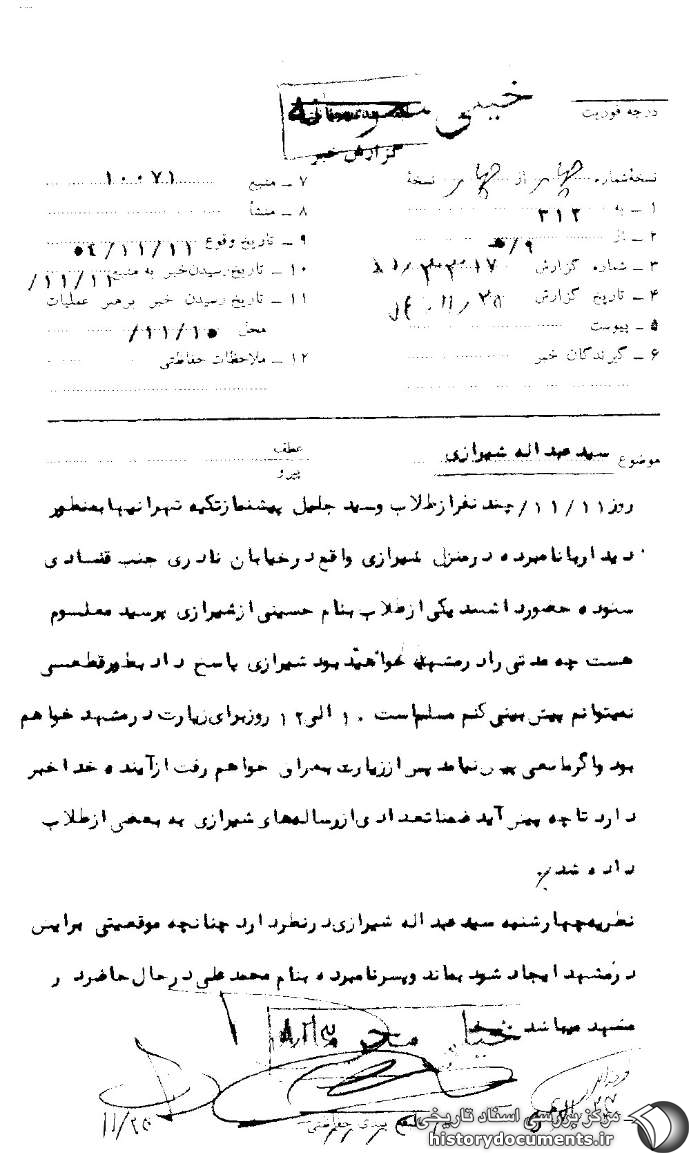 خیلی محرمانه
درجه فوریت
گزارش خبر
نسخه شماره چهار از چهار نسخه
۱ ـ به ۳۱۲
۲ ـ از ۹/ه
۳ ـ شماره گزارش
۴ ـ تاریخ گزارش
۵ ـ پیوست
۶ ـ گیرندگان خبر
۷ ـ منبع ۱۰۰۷۱
۸ ـ منشأ
۹ ـ تاریخ وقوع ۵۴/۱۱/۱۱
۱۰ ـ تاریخ رسیدن خبر به منبع ۱۱/۱۱/
۱۱ ـ تاریخ رسیدن خبر برهبر عملیات
محل ۱۱/۱۵/
۱۲ ـ ملاحظات حفاظتی
موضوع سید عبداله شیرازی
عطف
پیرو
روز ۱۱/۱۱/ چند نفر از طلاب و سید جلیل پیشنماز تکیه تهرانیها بمنظور
دیدار با نامبرده در منزل شیرازی واقع در خیابان نادری جنب قنادی
ستوده حضور داشتند یکی از طلاب بنام حسینی از شیرازی پرسید معلوم
هست چه مدتی را در مشهد خواهید بود شیرازی پاسخ داد بطور قطعی
نمیتوانم پیش بینی کنم مسلم است ۱۰ الی ۱۲ روز برای زیارت در مشهد خواهم
بود و اگر مانعی پیش نیامد پس از زیارت بتهران خواهم رفت از آینده خدا خبر
دارد تا چه پیش آید ضمنا تعدادی از رساله‌های شیرازی به بعضی از طلاب
داده شد
نظریه چهارشنبه سید عبداله شیرازی در نظر دارد چنانچه موقعیتی برایش
در مشهد ایجاد شود بماند و پسر نامبرده بنام محمد علی در حال حاضر در
مشهد میباشد
خیلی محرمانه
طبقه بندی حفاظتی
۱۱/۲۵
مرکز بررسی اسناد تاریخی
historydocuments.ir